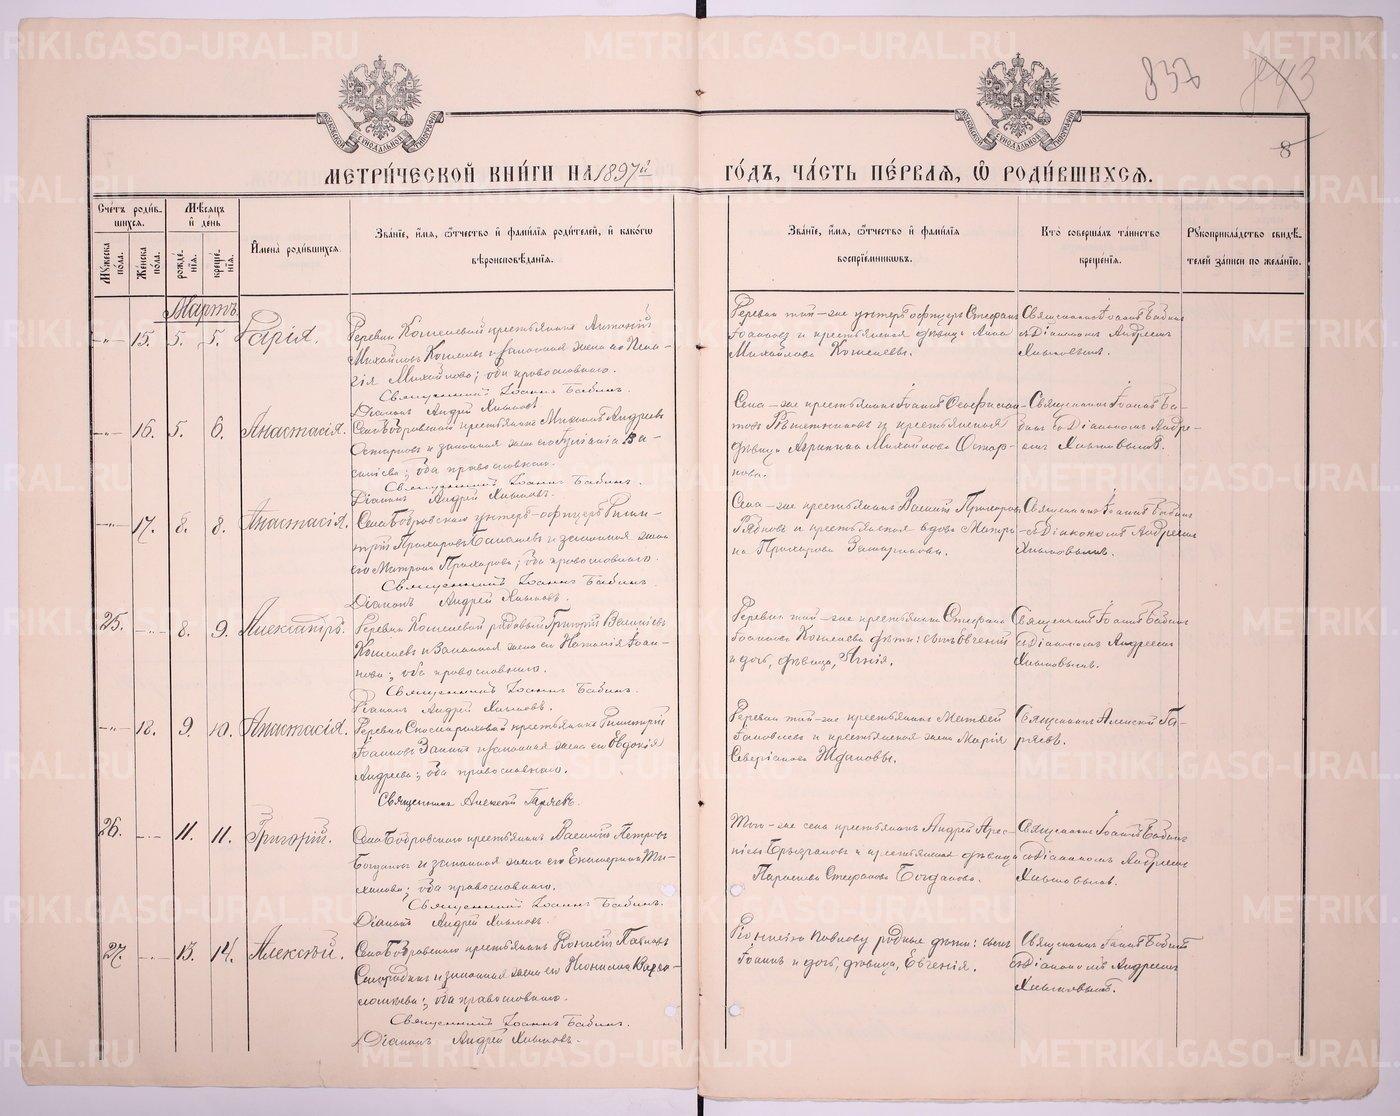 METRIKI.GASO-URAL.RU
837
843
8
МОСКОВСКОЙ СѴНОДАЛЬНОЙ ТИПОГРАФІИ
МОСКОВСКОЙ СѴНОДАЛЬНОЙ ТИПОГРАФІИ
МЕТРИ́ЧЕСКОЙ КНИ́ГИ НА 1897й ГО́ДЪ, ЧА́СТЬ ПЕ́РВАѦ, Ѽ РОДИ́ВШИХСѦ.
Сче́тъ роди́в-
шихсѧ.
Мꙋ́жеска по́ла.
Же́нска по́ла.
Мѣ́сѧцъ
и҆ де́нь
рожде́-
нїѧ.
креще́-
нїѧ.
И҆мена̀ роди́вшихсѧ.
Зва́нїе, и҆́мѧ, ѻ҆́тчество и҆ фами́лїѧ роди́телей, и҆ како́гѡ
вѣроисповѣ́данїѧ.
Зва́нїе, и҆́мѧ, ѻ҆́тчество и҆ фами́лїѧ
воспрїе́мникѡвъ.
Кто̀ соверша́лъ та́инство
креще́нїѧ.
Рꙋкоприкла́дство свидѣ́-
телей за́писи по жела́нїю.
Мартъ
15. 5. 5. Дарія.
Деревни Кошелевой крестьянинъ Антоній
Михайловъ Кошелевъ и законная жена его Пела-
гія Михайлова; оба православнаго.
Священникъ Іоаннъ Бабинъ.
Діаконъ Андрей Хлыновъ
Деревни той-же унтеръ офицеръ Стефанъ
Іоанновъ и крестьянская дѣвица Анна
Михайлова Кошелевы.
Священникъ Іоаннъ Бабинъ
съ Діакономъ Андреемъ
Хлыновымъ.
16. 5. 6. Анастасія.
Села Бобровскаго крестьянинъ Михаилъ Андреевъ
и законная жена его Ва-
сильева; оба православнаго.
Священникъ Іоаннъ Бабинъ.
Діаконъ Андрей Хлыновъ.
Села-же крестьянинъ Іоаннъ
и крестьянская
дѣвица Агрипина Михайлова
нова.
Священникъ Іоаннъ Ба-
бинъ съ Діакономъ Андре-
емъ Хлыновымъ.
17. 8. 8. Анастасія.
Села Бобровскаго унтеръ-офицеръ Дими-
трій Прохоровъ и законная жена
его Матрона Прохорова; оба православнаго.
Священникъ Іоаннъ Бабинъ.
Діаконъ Андрей Хлыновъ.
Села-же крестьянинъ Василій Прохоровъ
и крестьянская вдова Матро-
на Прохорова
Священникъ Іоаннъ Бабинъ
съ Діакономъ Андреемъ
Хлыновымъ.
25. 8. 9. Александръ.
Деревни Кошелевой рядовый Григорій Васильевъ
Кошелевъ и законная жена его Наталія Іоан-
нова; оба православнаго.
Священникъ Іоаннъ Бабинъ.
Діаконъ Андрей Хлыновъ.
Деревни той-же крестьянина Стефана
Іоаннова Кошелева дѣти: сынъ Евгеній
и дочь, дѣвица, Агнія.
Священникъ Іоаннъ Бабинъ
съ Діакономъ Андреемъ
Хлыновымъ.
18. 9. 10. Анастасія.
Деревни крестьянинъ Димитрій
Іоанновъ и законная жена его Евдокія
Андреева; оба православнаго.
Священникъ Алексій Гаряевъ.
Деревни той-же крестьянинъ Матвей
и крестьянская жена Марія
Северіанова Ждановы.
Священникъ Алексій Га-
ряевъ.
26. 11. 11. Григорій.
Села Бобровскаго крестьянинъ Василій Петровъ
Богдановъ и законная жена его Екатерина Ми-
хаилова; оба православнаго.
Священникъ Іоаннъ Бабинъ.
Діаконъ Андрей Хлыновъ.
Того-же села крестьянинъ Андрей
и крестьянская дѣвица
Параскева Стефанова Богданова.
Священникъ Іоаннъ Бабинъ
съ Діакономъ Андреемъ
Хлыновымъ.
27. 13. 14. Алексѣй.
Села Бобровскаго крестьянинъ Діонисій Павловъ
и законная жена его Варѳо-
ломеева; оба православнаго.
Священникъ Іоаннъ Бабинъ.
Діаконъ Андрей Хлыновъ.
Діонисію Павлову родные дѣти: сынъ
Іоаннъ и дочь, дѣвица, Евгенія.
Священникъ Іоаннъ Бабинъ
съ Діакономъ Андреемъ
Хлыновымъ.